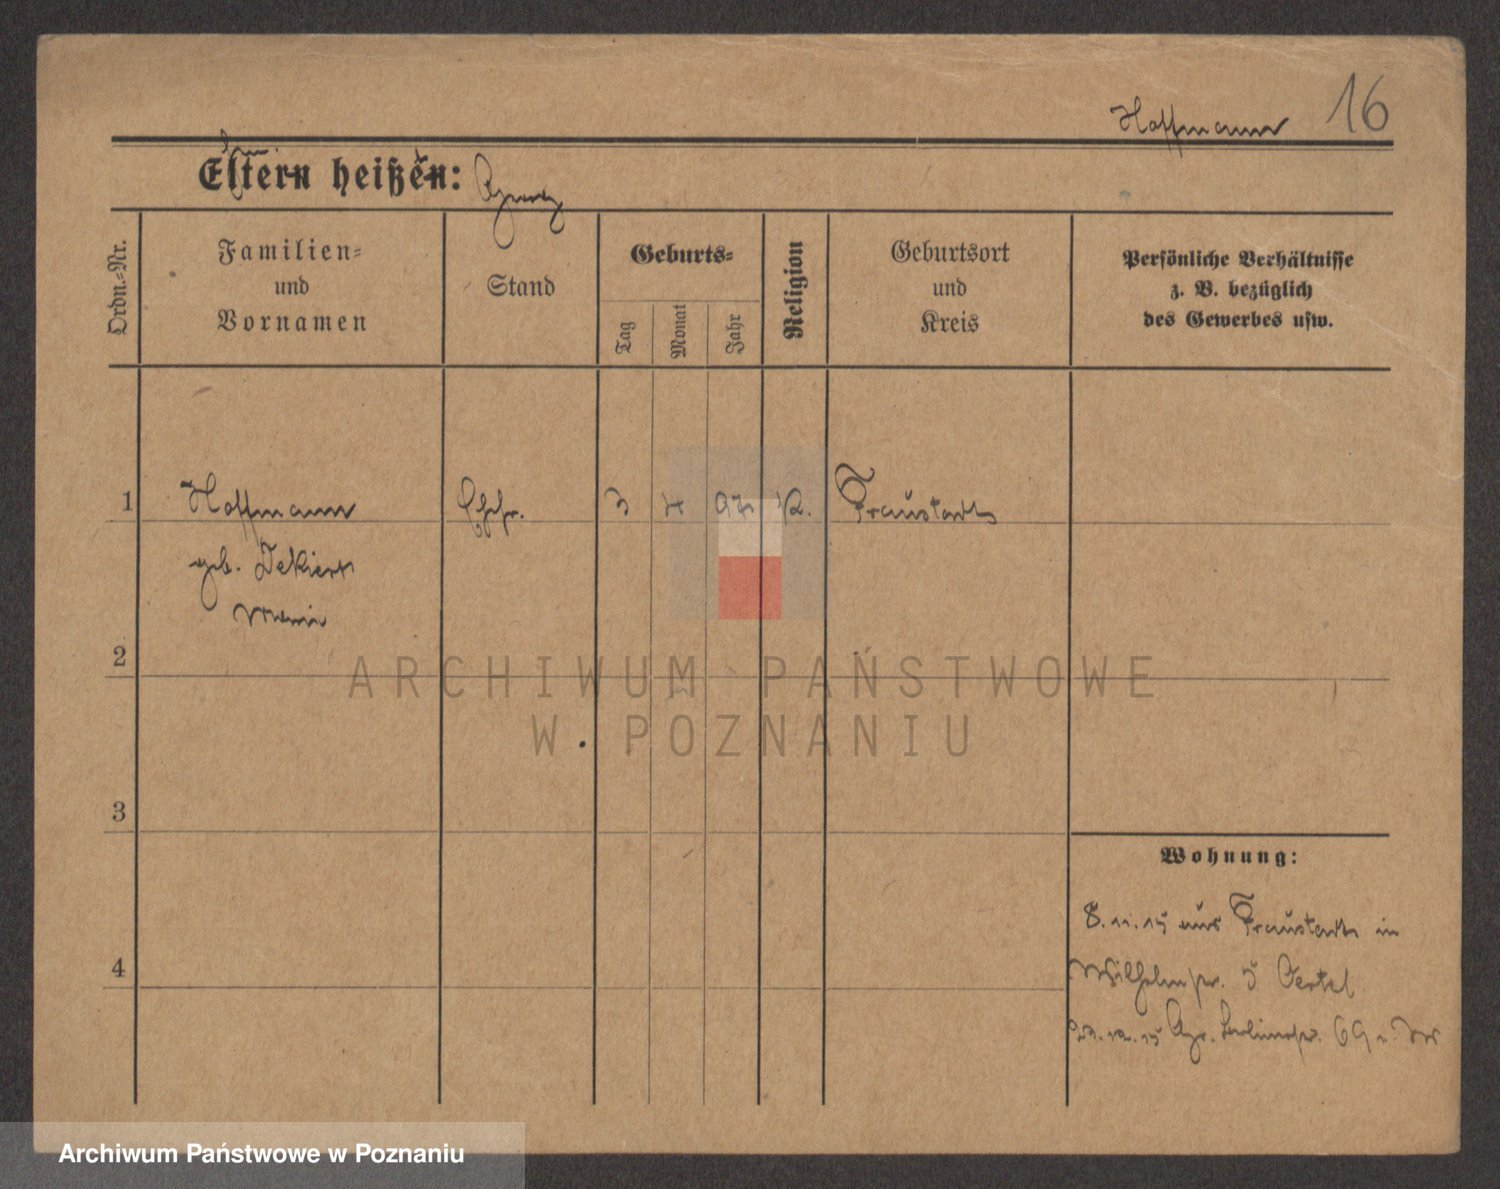 Hoffmann 16
Eltern heißen:
Ordn.-Nr.
Familien-
und
Vornamen
Stand
Geburts-
Tag
Monat
Jahr
Religion
Geburtsort
und
Kreis
Persönliche Verhältnisse
z. B. bezüglich
des Gewerbes usw.
1 Hoffmann Ehefr. 3 4 97 K. Fraustadt
geb. Dekiert
Maria
2
ARCHIWUM PAŃSTWOWE
W POZNANIU
3
Wohnung:
8.11.15 aus Fraustadt in
4
Wilhelmstr. 5 Oertel
Berlinerstr.
Archiwum Państwowe w Poznaniu